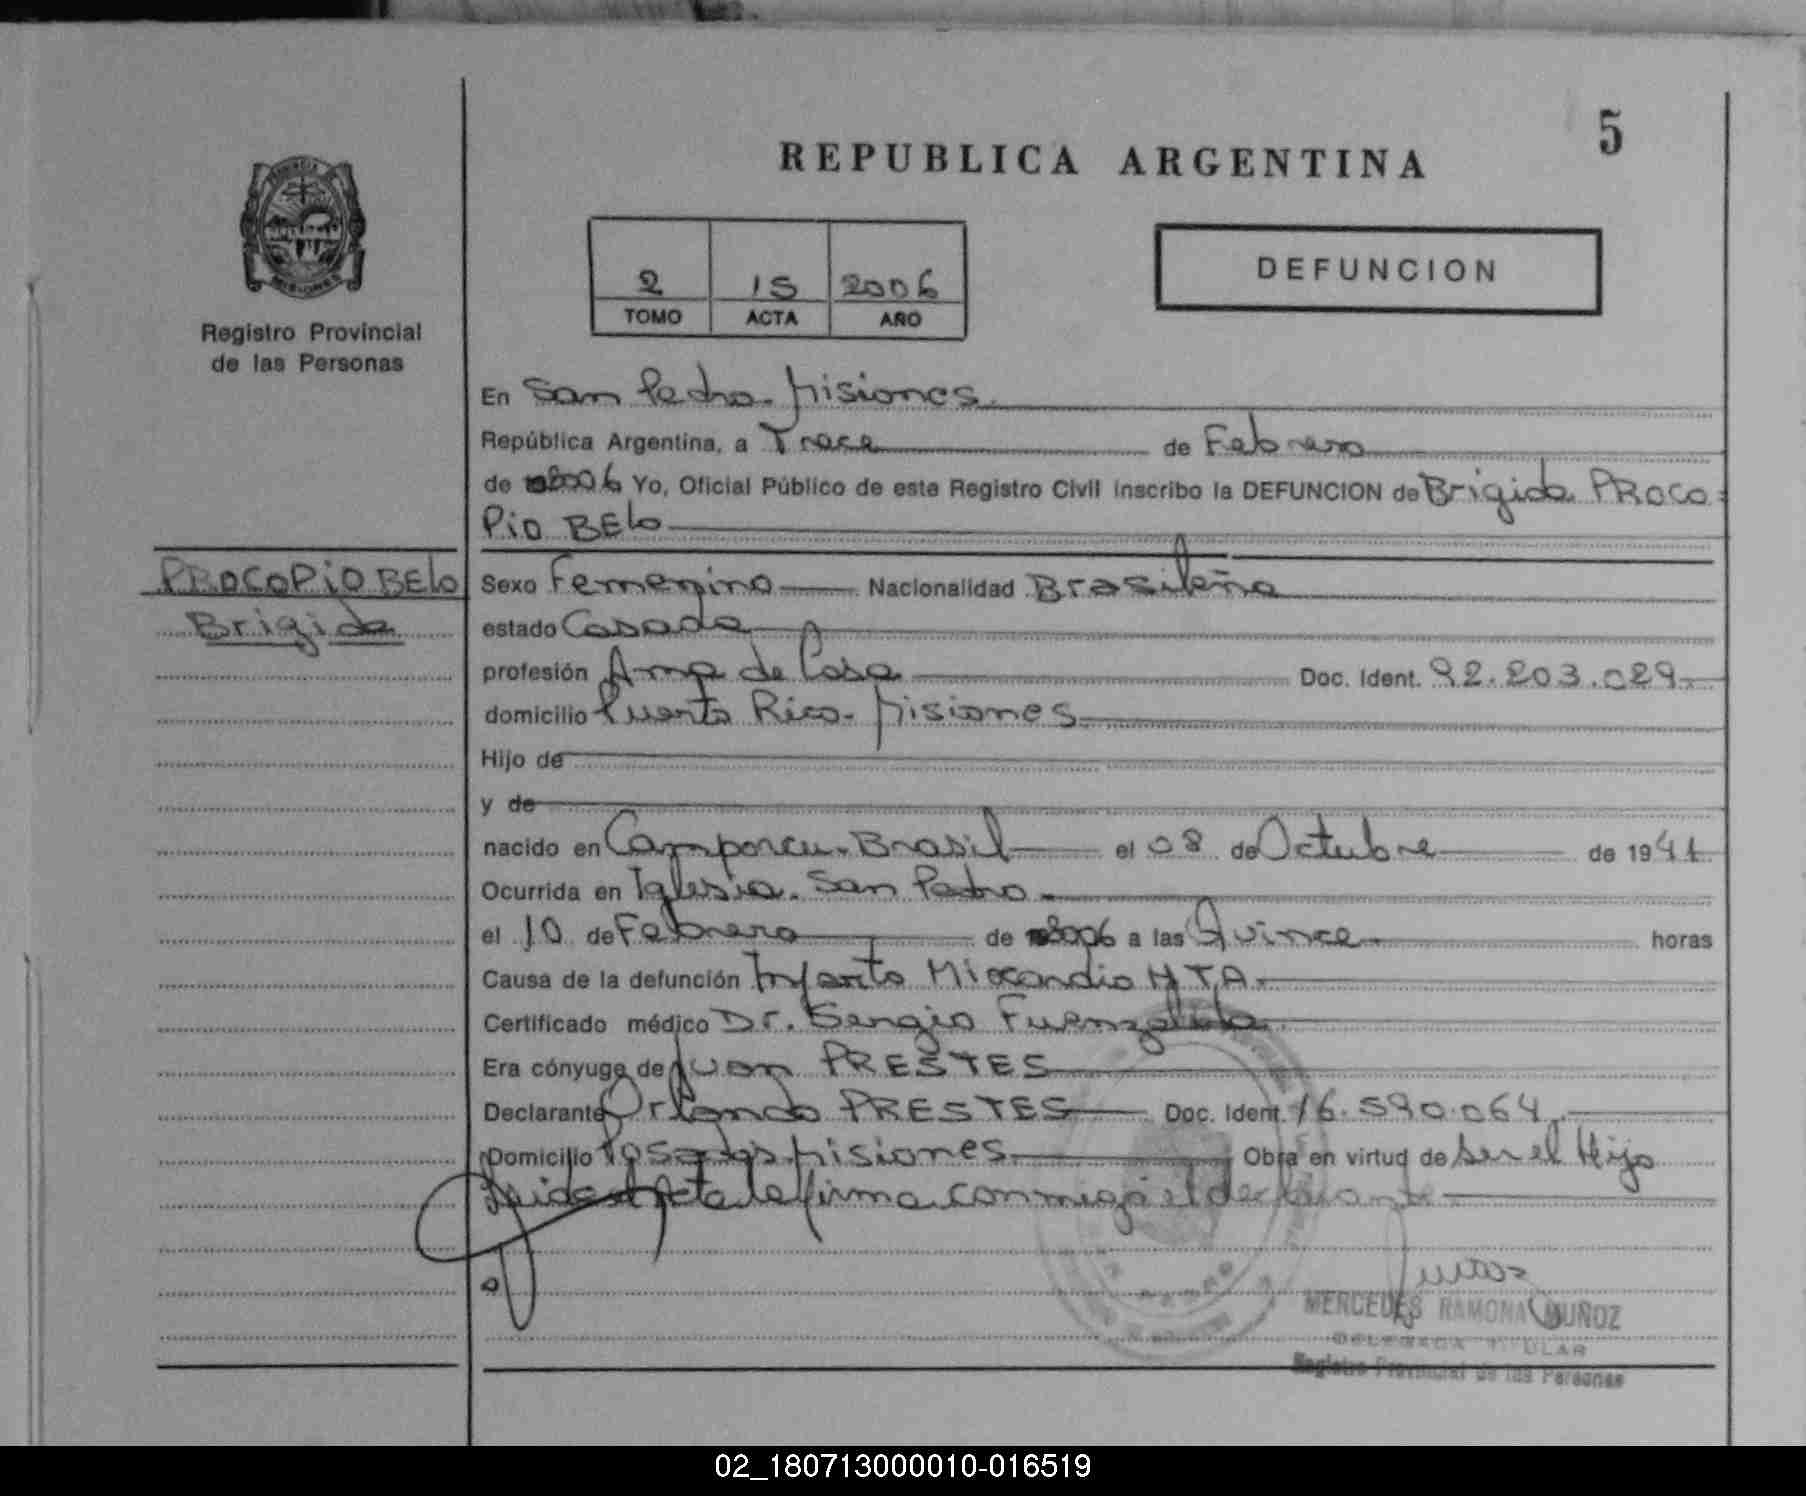 5
REPUBLICA ARGENTINA
DEFUNCION
2 15 2006
TOMO ACTA AÑO
Registro Provincial
de las Personas
En San Pedro - Misiones
República Argentina, a Trece de Febrero
de 2006 Yo, Oficial Público de este Registro Civil inscribo la DEFUNCION de Brigida PROCO=
PiO BElo
PROCOPiO BElo
Brigida
Sexo Femenino Nacionalidad Brasileña
estado Casada
profesión Ama de Casa Doc. Ident. 92.203.029
domicilio Puerto Rico - Misiones
Hijo de
y de
nacido en Brasil el 08 de Octubre de 1941
Ocurrida en Iglesia - San Pedro
el 10 de Febrero de 2006 a las Quince horas
Causa de la defunción Infarto Miocardio HTA
Certificado médico Dr. Sergio Fuenzalida
Era cónyuge de Juan PRESTES
Declarante Orlando PRESTES Doc. Ident. 16.590.064
Domicilio Posadas - Misiones Obra en virtud de ser el Hijo
Leida el Acta la firma conmigo el declarante
MERCEDES RAMONA MUÑOZ
DELEGADA TITULAR
Registro Provincial de las Personas
02_180713000010-016519